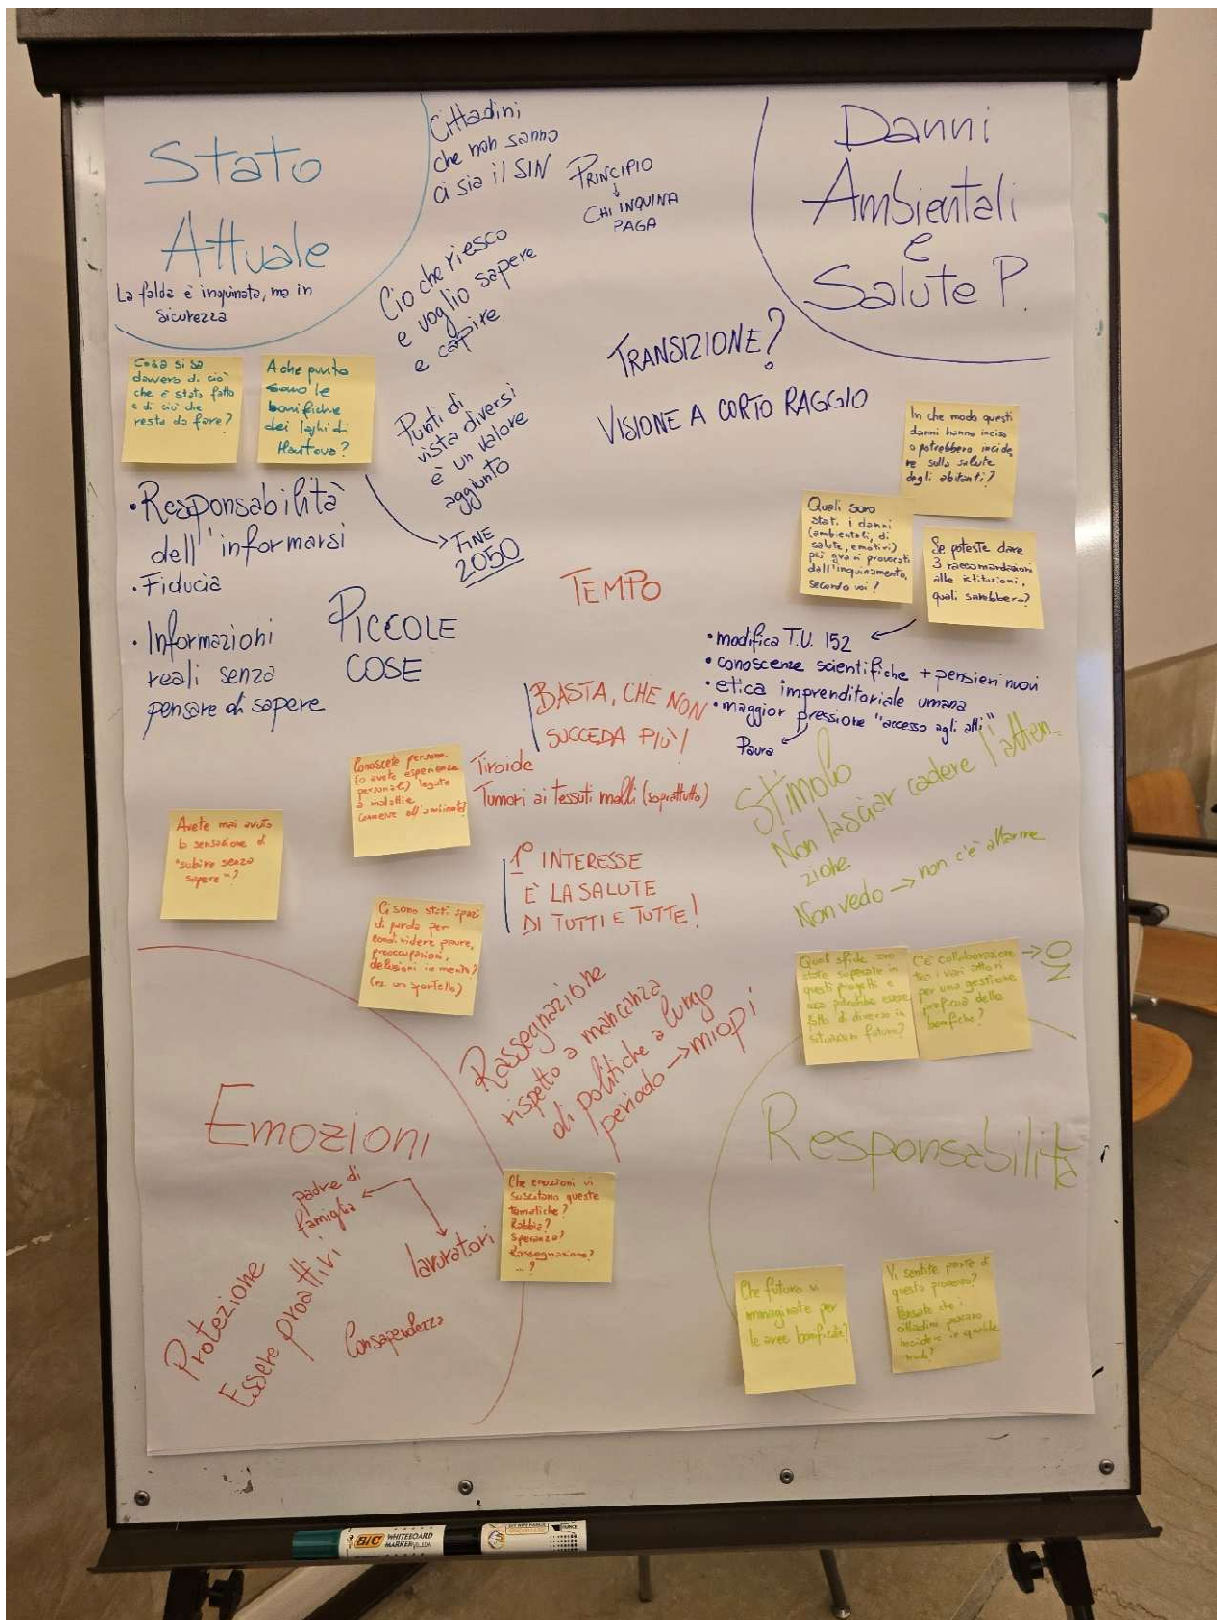 Stato
Attuale
La falda è inquinata, ma in
sicurezza
Cittadini
che non sanno
ci sia il SIN
PRINCIPIO
↓
CHI INQUINA
PAGA
Danni
Ambientali
e
Salute P.
Ciò che riesco
e voglio sapere
e capire
TRANSIZIONE?
VISIONE A CORTO RAGGIO
Cosa si sa
davvero di ciò
che è stato fatto
e di ciò che
resta da fare?
A che punto
sono le
bonifiche
dei laghi di
Mantova?
Punti di
vista diversi
è un valore
aggiunto
→ FINE
2050
In che modo questi
danni hanno inciso
o potrebbero incide
re sulla salute
degli abitanti?
Quali sono
stati i danni
(ambientali, di
salute, emotivi)
più gravi provocati
dall'inquinamento,
secondo voi?
Se poteste dare
3 raccomandazioni
alle istituzioni,
quali sarebbero?
• Responsabilità
dell'informarsi
• Fiducia
• Informazioni
reali senza
pensare di sapere
PICCOLE
COSE
TEMPO
• modifica T.U. 152
• conoscenze scientifiche + pensieri nuovi
• etica imprenditoriale umana
• maggior pressione "accesso agli atti"
Paura
BASTA, CHE NON
SUCCEDA PIÙ!
Conoscete persone
(o avete esperienze
personali) legate
a malattie
connesse all'ambiente?
Tiroide
Tumori ai tessuti molli (soprattutto)
Stimolo
Non lasciar cadere l'atten-
zione
Non vedo → non c'è allarme
Avete mai avuto
la sensazione di
"subire senza
sapere"?
1° INTERESSE
È LA SALUTE
DI TUTTI E TUTTE!
Ci sono stati spazi
di parola per
condividere paure,
preoccupazioni,
delusioni in merito?
(es. un sportello)
Rassegnazione
rispetto a mancanza
di politiche a lungo
periodo → miopi
Quali sfide sono
state superate in
questi progetti e
cosa potrebbe essere
fatto di diverso in
situazioni future?
C'è collaborazione
tra i vari attori
per una gestione
proficua delle
bonifiche?
→ NO
Emozioni
padre di
famiglia
lavoratori
Protezione
Essere proattivi
Consapevolezza
Che emozioni vi
suscitano queste
tematiche?
Rabbia?
Speranza?
Rassegnazione?
...?
Responsabilità
Che futuro vi
immaginate per
le aree bonificate?
Vi sentite parte di
questo processo?
Pensate che i
cittadini possano
incidere in qualche
modo?
BIC WHITEBOARD
MARKER VELLEDA